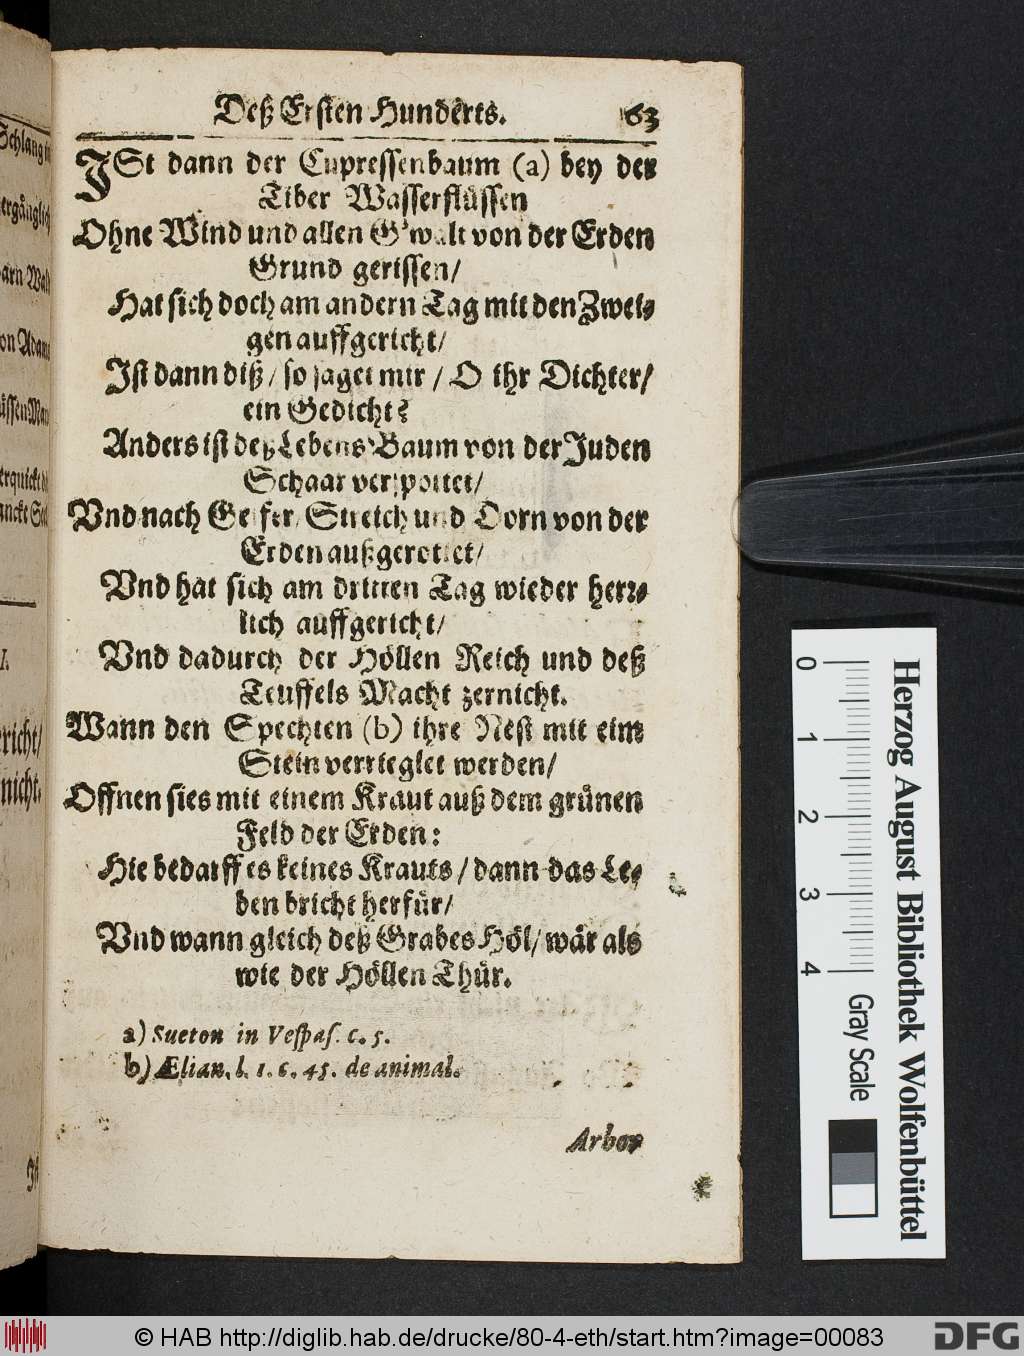 Deß Ersten Hunderts. 63
ISt dann der Cupressenbaum (a) bey der
Tiber Wasserflüssen
Ohne Wind und allen G'walt von der Erden
Grund gerissen/
Hat sich doch am andern Tag mit den Zwei-
gen auffgericht/
Ist dann diß / so saget mir / O ihr Dichter/
ein Gedicht?
Anders ist deß Lebens Baum von der Juden
Schaar verspottet/
Vnd nach Geisser, Streich und Dorn von der
Erden außgerottet/
Vnd hat sich am dritten Tag wieder herr-
lich auffgericht/
Vnd dadurch der Höllen Reich und deß
Teuffels Macht zernicht.
Wann den Spechten (b) ihre Nest mit eim
Stein verrieglet werden/
Offnen sies mit einem Kraut auß dem grünen
Feld der Erden:
Hie bedarff es keines Krauts / dann das Le-
ben bricht herfür/
Vnd wann gleich deß Grabes Höl / wär als
wie der Höllen Thür.
a) Sueton in Vespas. c. 5.
b) Ælian. l. 1. c. 45. de animal.
Arbor
Schlang
ergänglich
von Adam
üssen
erquickt
richt/
nicht.
0 1 2 3 4
Herzog August Bibliothek Wolfenbüttel
Gray Scale
© HAB http://diglib.hab.de/drucke/80-4-eth/start.htm?image=00083
DFG